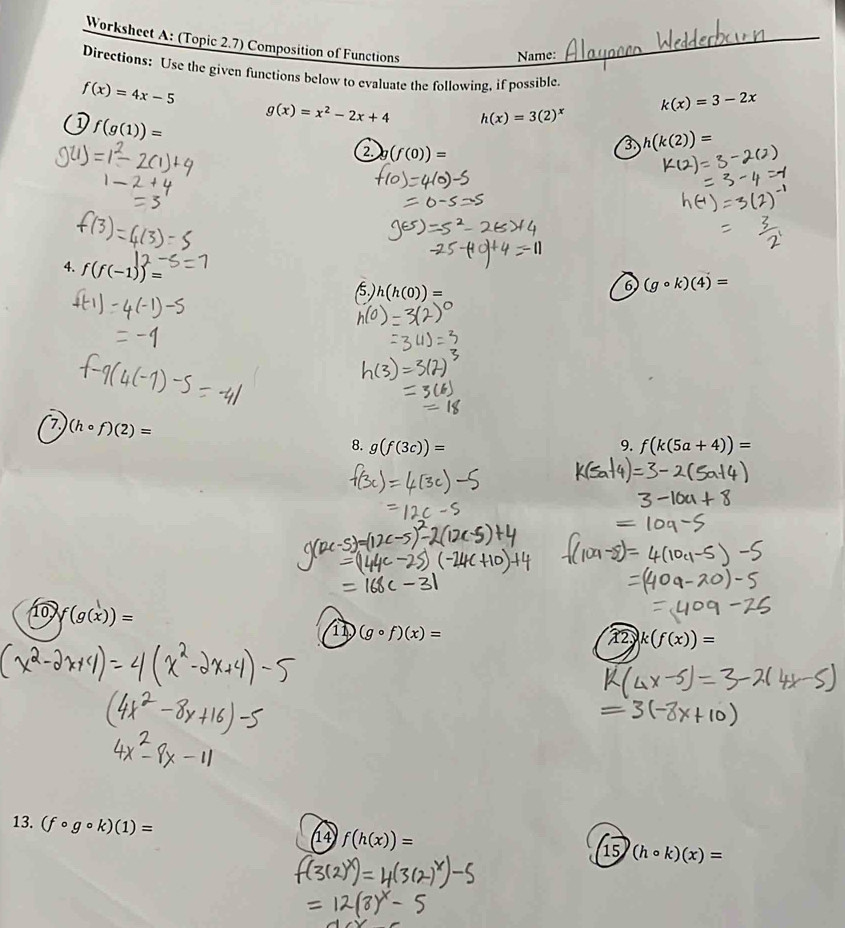 Worksheet A: (Topic 2.7) Composition of Functions
Name: Wedderburn
Directions: Use the given functions below to evaluate the following, if possible.
f(x) = 4x − 5
g(x) = x² − 2x + 4
h(x) = 3(2)ˣ
k(x) = 3 − 2x
1. f(g(1)) =
g(1) = 1² - 2(1) + 4
1 - 2 + 4
= 3
f(3) = 4(3) - 5
12 - 5 = 7
2. g(f(0)) =
f(0) = 4(0) - 5
= 0 - 5 = -5
g(-5) = 5² - 2(-5) + 4
-25 - (-10) + 4 = -11
3. h(k(2)) =
k(2) = 3 - 2(2)
= 3 - 4 = -1
h(-1) = 3(2)⁻¹
= 3/2
4. f(f(−1)) =
f(-1) = 4(-1) - 5
= -9
f-9(4(-9) - 5 = -41
5. h(h(0)) =
h(0) = 3(2)⁰
= 3(1) = 3
h(3) = 3(2)³
= 3(6)
= 18
6. (g ∘ k)(4) =
7. (h ∘ f)(2) =
8. g(f(3c)) =
f(3c) = 4(3c) - 5
= 12c - 5
g(12c - 5) = (12c - 5)² - 2(12c - 5) + 4
= (144c - 25) (-24c + 10) + 4
= 168c - 31
9. f(k(5a + 4)) =
k(5a + 4) = 3 - 2(5a + 4)
3 - 10a + 8
= 10a - 5
f(10a - 5) = 4(10a - 5) - 5
= (40a - 20) - 5
= 40a - 25
10. f(g(x)) =
(x² - 2x + 4) = 4(x² - 2x + 4) - 5
(4x² - 8x + 16) - 5
4x² - 8x - 11
11. (g ∘ f)(x) =
12. k(f(x)) =
k(4x - 5) = 3 - 2(4x - 5)
= 3(-8x + 10)
13. (f ∘ g ∘ k)(1) =
14. f(h(x)) =
f(3(2)ˣ) = 4(3(2)ˣ) - 5
= 12(8)ˣ - 5
15. (h ∘ k)(x) =